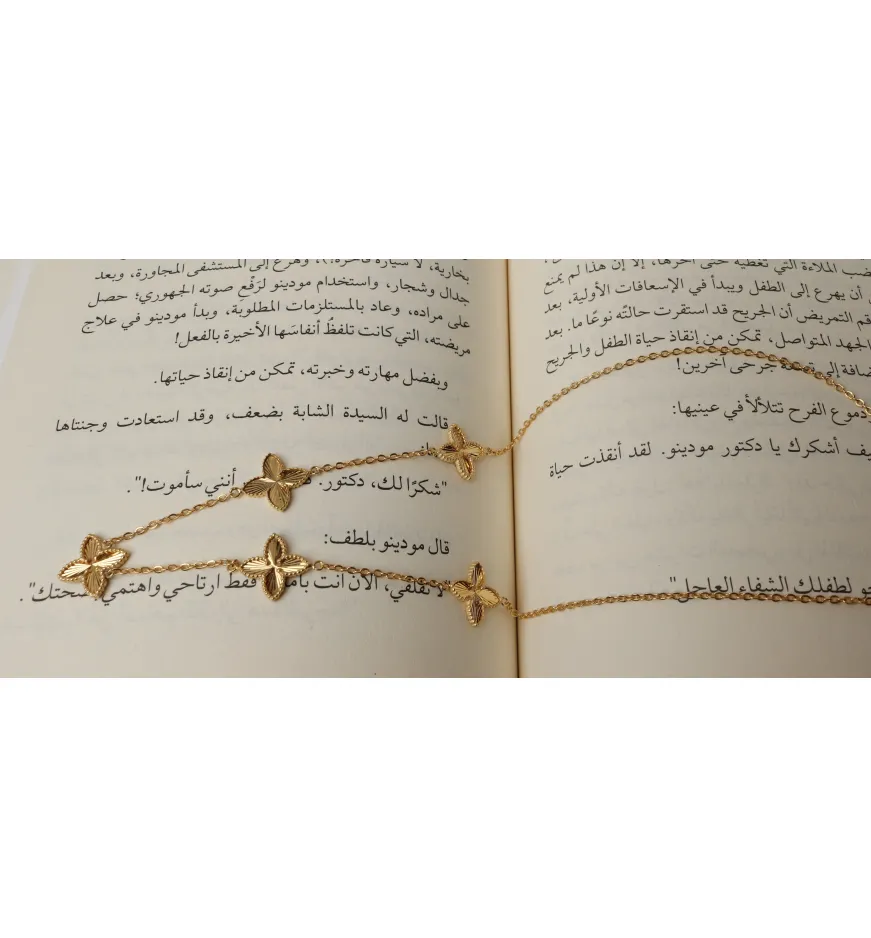 ضب الملاءة التي تغطيه حتى آخرها، إلا إن هذا لم يمنع
أن يهرع إلى الطفل ويبدأ في الإسعافات الأولية، بعد
قم التمريض أن الجريح قد استقرت حالته نوعًا ما. بعد
الجهد المتواصل، تمكن من إنقاذ حياة الطفل والجريح
ضافة إلى جرحى آخرين!
دموع الفرح تتلألأ في عينيها:
يف أشكرك يا دكتور مودينو. لقد أنقذت حياة
جو لطفلك الشفاء العاجل"
بخارية، لا سيارة فاخرة!)، وهرع إلى المستشفى المجاورة، وبعد
جدال وشجار، واستخدام مودينو لرَفْعِ صوته الجهوري؛ حصل
على مراده، وعاد بالمستلزمات المطلوبة، وبدأ مودينو في علاج
مريضته، التي كانت تلفظُ أنفاسَها الأخيرة بالفعل!
وبفضل مهارته وخبرته، تمكن من إنقاذ حياتها.
قالت له السيدة الشابة بضعف، وقد استعادت وجنتاها
"شكرًا لك، دكتور. أنني سأموت!".
قال مودينو بلطف:
لا تقلقي، الآن أنت فقط ارتاحي واهتمي بصحتك".